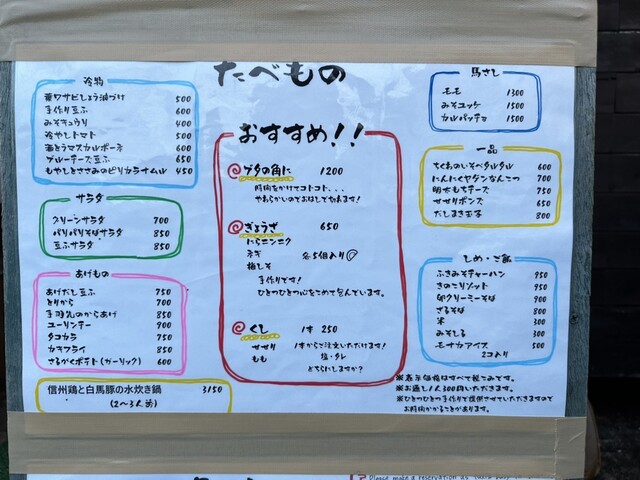 たべもの
冷物
茎ワサビしょう油づけ 500
手作り豆ふ 600
みそキュウリ 400
冷やしトマト 500
酒とうマスカルポーネ 600
ブルーチーズ豆ふ 650
もやしとささみのピリカラナムル 450
サラダ
グリーンサラダ 700
パリパリそばサラダ 850
豆ふサラダ 850
あげもの
あげだし豆ふ 750
とりから 700
手羽先のからあげ 850
ユーリンチー 900
タコカラ 750
カキフライ 850
さるかくポテト(ガーリック) 600
信州鶏と白馬豚の水炊き鍋 3150
(2〜3人前)
おすすめ!!
ブタの角に 1200
時間をかけてコトコト...
やわらかいのでおはしで切れます!
ぎょうざ 650
にらニンニク
ネギ 各5個入り
梅しそ
手作りです!
ひとつひとつ心をこめて包んでいます。
くし 1本 250
せせり 1本からご注文いただけます!
もも 塩・タレ
どちらにしますか?
馬さし
モモ 1300
みそユッケ 1500
カルパッチョ 1500
一品
ちくわのいそべタルタル 600
にんにくヤゲンなんこつ 700
明太もちチーズ 750
せせりポンズ 650
だしまき玉子 800
しめ・ご飯
ふきみそチャーハン 950
きのこリゾット 950
卵クリーミーそば 900
ざるそば 800
米 300
みそしる 300
モナカアイス 500
2コ入り
※表示価格はすべて税こみです。
※お通し1人300円いただきます。
※ひとつひとつ手作りで提供させていただきますので
お時間かかることがあります。